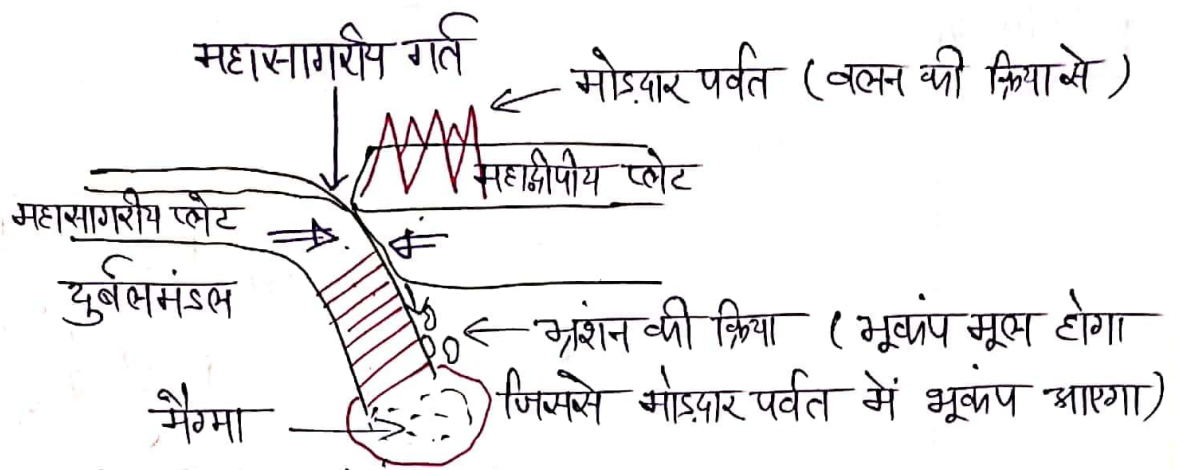 महासागरीय गर्त
मोड़दार पर्वत (वलन की क्रिया से)
महाद्वीपीय प्लेट
महासागरीय प्लेट
दुर्बलमंडल
भ्रंशन की क्रिया (भूकंप मूल होगा
जिससे मोड़दार पर्वत में भूकंप आएगा)
मैग्मा